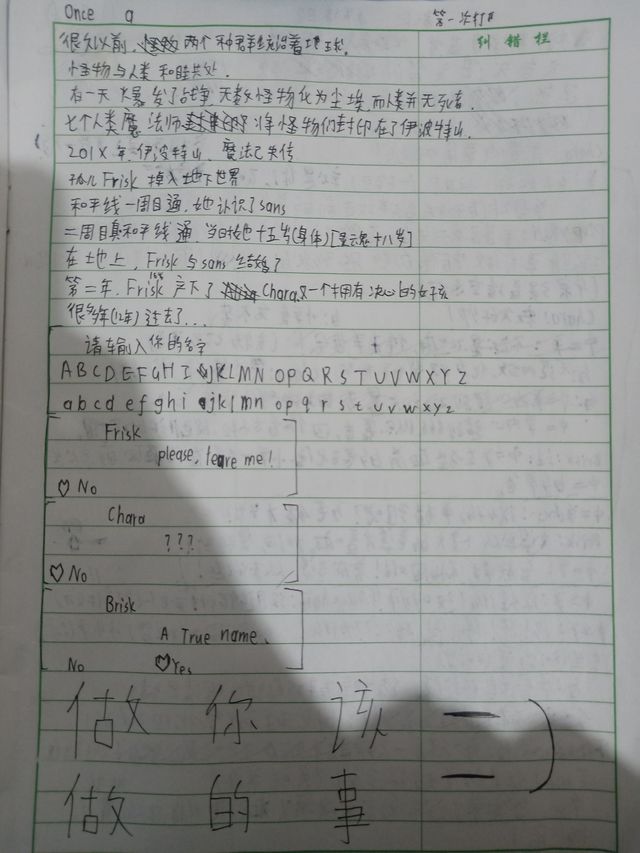 Once a
第一次打#
纠错栏
很久以前, 两个种群统治着地球.
怪物与人类和睦共处.
有一天 爆发了战争 无数怪物化为尘埃, 而人类并无死者.
七个人类魔法师将怪物们封印在了伊波特山.
201X年, 伊波特山, 魔法已失传
孤儿Frisk掉入地下世界
和平线一周目通, 她认识了sans
二周目真和平线通, 当时她十五岁(身体)[灵魂十八岁]
在土地上, Frisk与sans结婚了
第二年, Frisk产下了 Chara又一个拥有决心的女孩
很多年(12年)过去了...
请输入你的名字
A B C D E F G H I J K L M N O P Q R S T U V W X Y Z
a b c d e f g h i j k l m n o p q r s t u v w x y z
Frisk
please, leave me!
♡ No
Chara
???
♡ No
Brisk
A True name.
No ♡Yes
做 你 该 =)
做 的 事